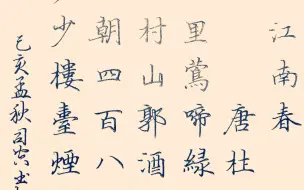 江南春
唐杜
里鶯啼緑
村山郭酒
朝四百八
少樓臺煙
己亥孟秋司